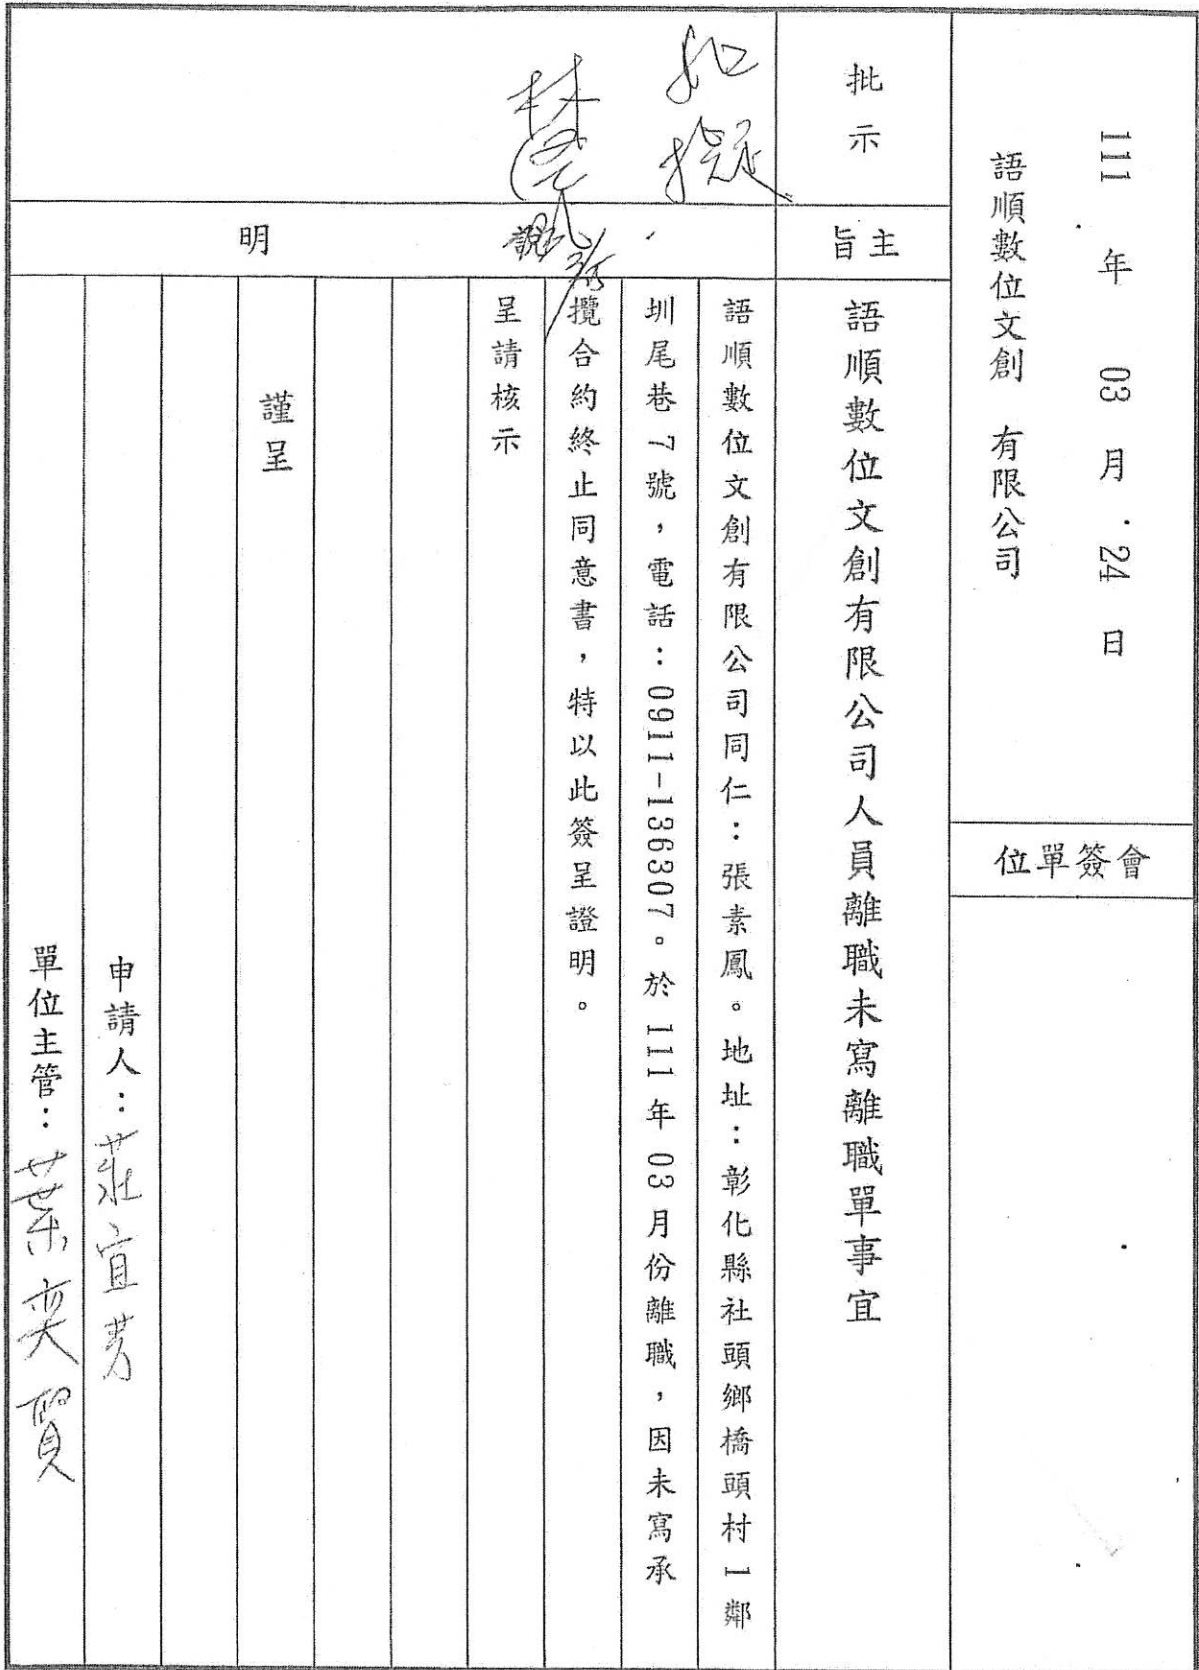 111 年 03 月 24 日
語順數位文創 有限公司
會簽單位
批示
如擬
林
主旨
語順數位文創有限公司人員離職未寫離職單事宜
說明
語順數位文創有限公司同仁：張素鳳。地址：彰化縣社頭鄉橋頭村1鄰
圳尾巷7號，電話：0911-136307。於 111 年 03 月份離職，因未寫承
攬合約終止同意書，特以此簽呈證明。
呈請核示
謹呈
申請人：莊宜芳
單位主管：葉奕賢